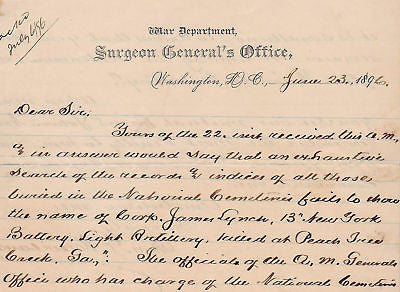 July 6/86
War Department,
Surgeon General's Office,
Washington, D.C., June 23, 1886.
Dear Sir.
Yours of the 22. inst received this A.M.
& in answer would say that an exhaustive
search of the records & indices of all those
buried in the National Cemeteries fails to show
the name of Corp. James Lynch, 13" New York
Battery, Light Artillery, killed at Peach Tree
Creek, Ga,". The officials of the Q. M. Generals
Office who has charge of the National Cemeteries